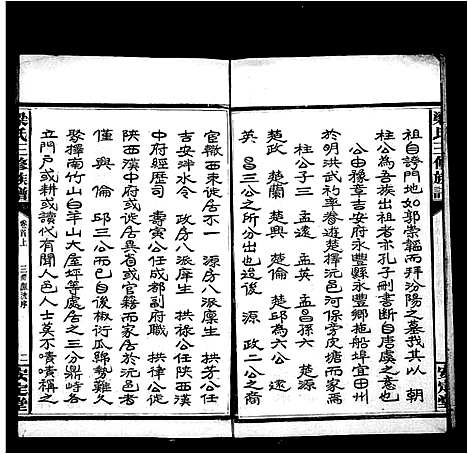 梁氏三修族譜
安定堂
祖自誇門地如郭崇韜而拜汾陽之墓我其以　朝
柱公為吾族出祖者亦孔子刪書斷自唐虞之意也
公豫章吉安府永豐縣永豐鄉拖船埠宜田州
於明洪武初季卜遊楚擇沅邑河保旁皮塘而家焉
柱公子三　孟遠　孟英　孟昌孫六　楚源
楚政　楚興　楚倫　楚邱為六公　遠
英　昌三公之所分出也後　源　政二公之裔
官轍西東徙居不一　源房八派庠生
吉安泮水令　政房八派庠生　拱祿公任陝西漢
中府經歷司　黃寅公任成都副府職　拱律公徙
陝西漢中府居焉或官籍而家居於沅邑者
僅　興　倫　邱三公而已自後椒衍瓜綿勢難久
聚擇南竹山白羊山大屋坪等處居之三分鼎峙各
立門戶或耕或讀代有聞人邑人士莫不嘖嘖稱之
梁氏三修族譜
卷首上
三修源流序
二
安定堂